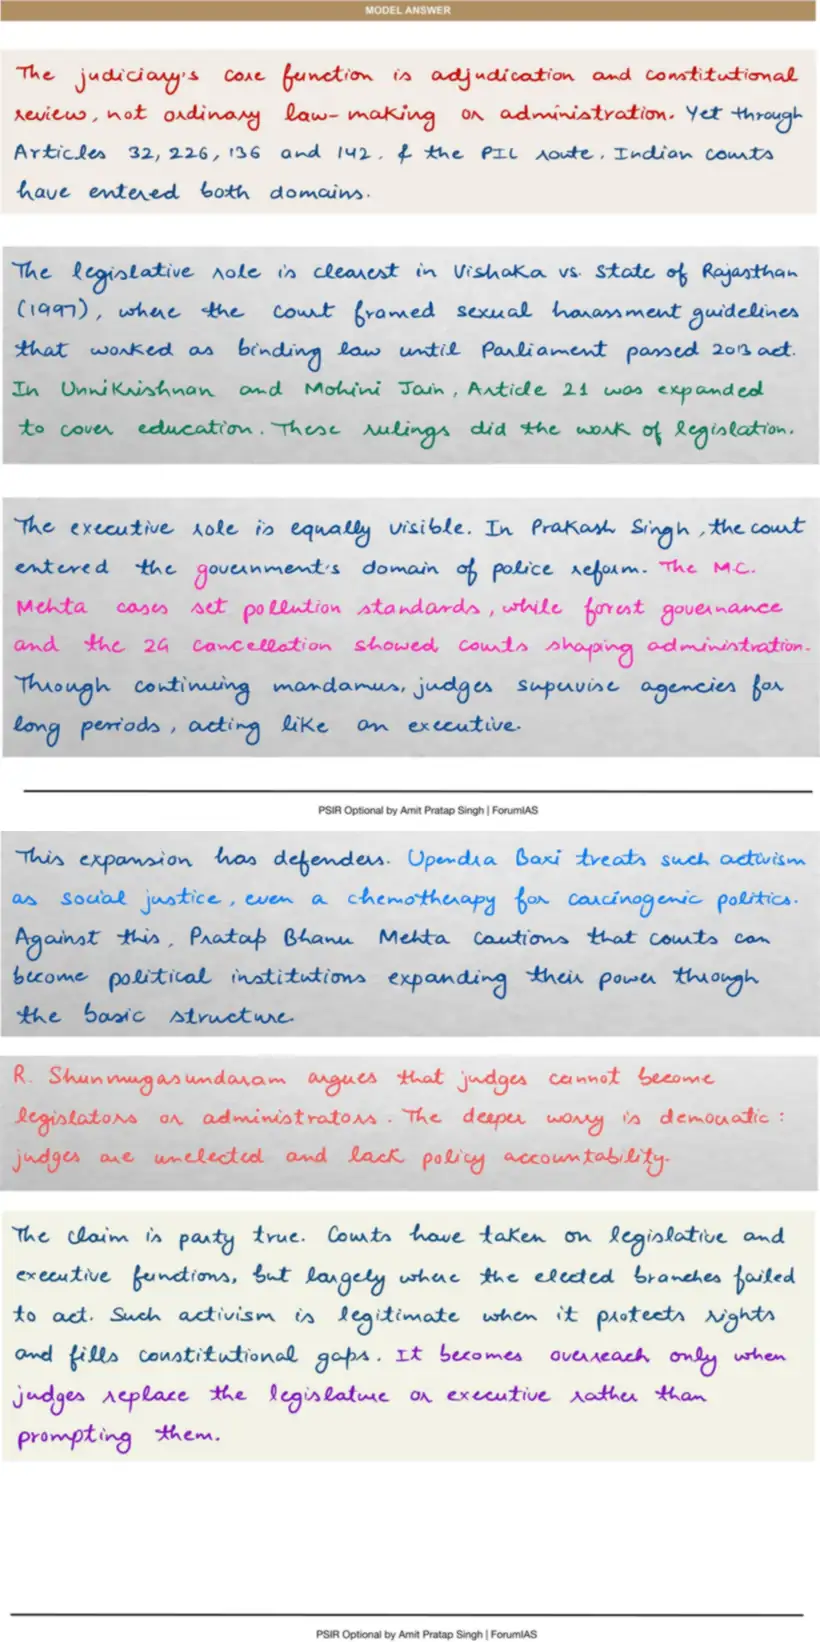 MODEL ANSWER
The judiciary's core function is adjudication and constitutional
review, not ordinary law-making or administration. Yet through
Articles 32, 226, 136 and 142, & the PIL route, Indian courts
have entered both domains.
The legislative role is clearest in Vishaka vs. State of Rajasthan
(1997), where the court framed sexual harassment guidelines
that worked as binding law until Parliament passed 2013 act.
In UnniKrishnan and Mohini Jain, Article 21 was expanded
to cover education. These rulings did the work of legislation.
The executive role is equally visible. In Prakash Singh, the court
entered the government's domain of police reform. The M.C.
Mehta cases set pollution standards, while forest governance
and the 2G cancellation showed courts shaping administration.
Through continuing mandamus, judges supervise agencies for
long periods, acting like an executive.
PSIR Optional by Amit Pratap Singh | ForumIAS
This expansion has defenders. Upendra Baxi treats such activism
as social justice, even a chemotherapy for carcinogenic politics.
Against this, Pratap Bhanu Mehta cautions that courts can
become political institutions expanding their power through
the basic structure.
R. Shunmugasundaram argues that judges cannot become
legislators or administrators. The deeper worry is democratic:
judges are unelected and lack policy accountability.
The claim is party true. Courts have taken on legislative and
executive functions, but largely where the elected branches failed
to act. Such activism is legitimate when it protects rights
and fills constitutional gaps. It becomes overreach only when
judges replace the legislature or executive rather than
prompting them.
PSIR Optional by Amit Pratap Singh | ForumIAS